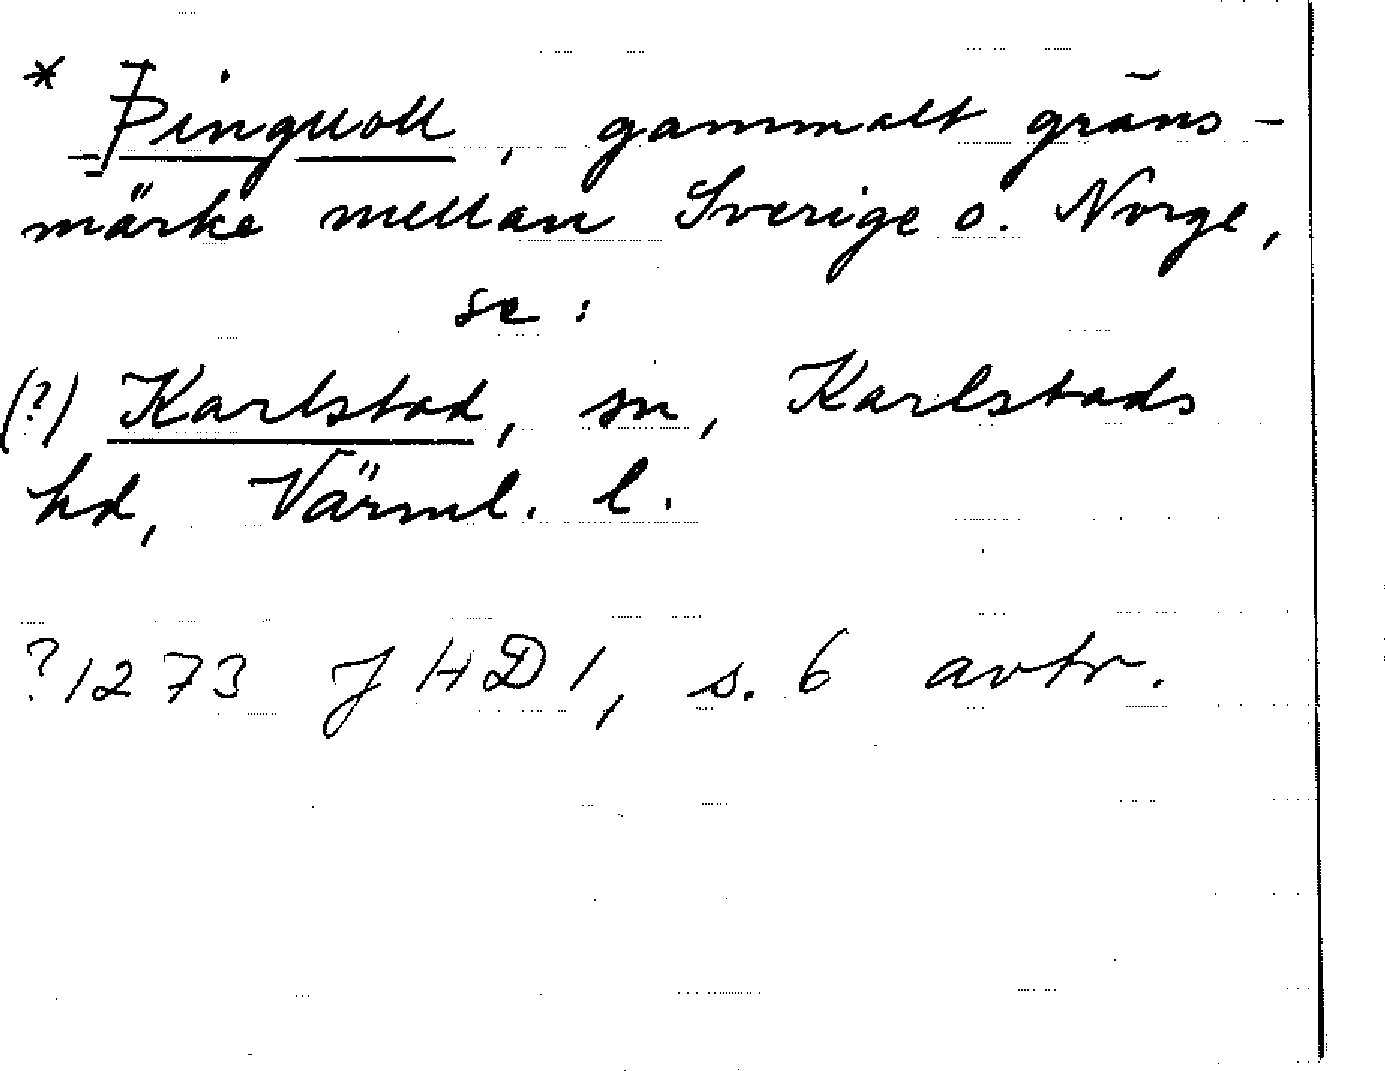 * Þinguoll, gammalt gräns-
märke mellan Sverige o. Norge,
se:
(?) Karlstad, sn, Karlstads
hd, Värml. l.
?1273 JHD 1, s. 6 avtr.